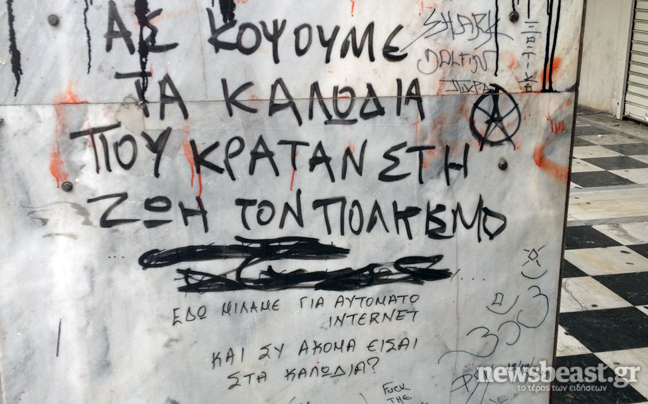 ΑΣ ΚΟΨΟΥΜΕ
ΤΑ ΚΑΛΩΔΙΑ
ΠΟΥ ΚΡΑΤΑΝ ΣΤΗ
ΖΩΗ ΤΟΝ ΠΟΛΚΕΜΟ
ΕΔΩ ΜΙΛΑΜΕ ΓΙΑ ΑΥΤΟΜΑΤΟ
INTERNET
ΚΑΙ ΣΥ ΑΚΟΜΑ ΕΙΣΑΙ
ΣΤΑ ΚΑΛΩΔΙΑ?
FUCK
THE
SHARK
DOLFIN
newsbeast.gr
το τέρας των ειδήσεων